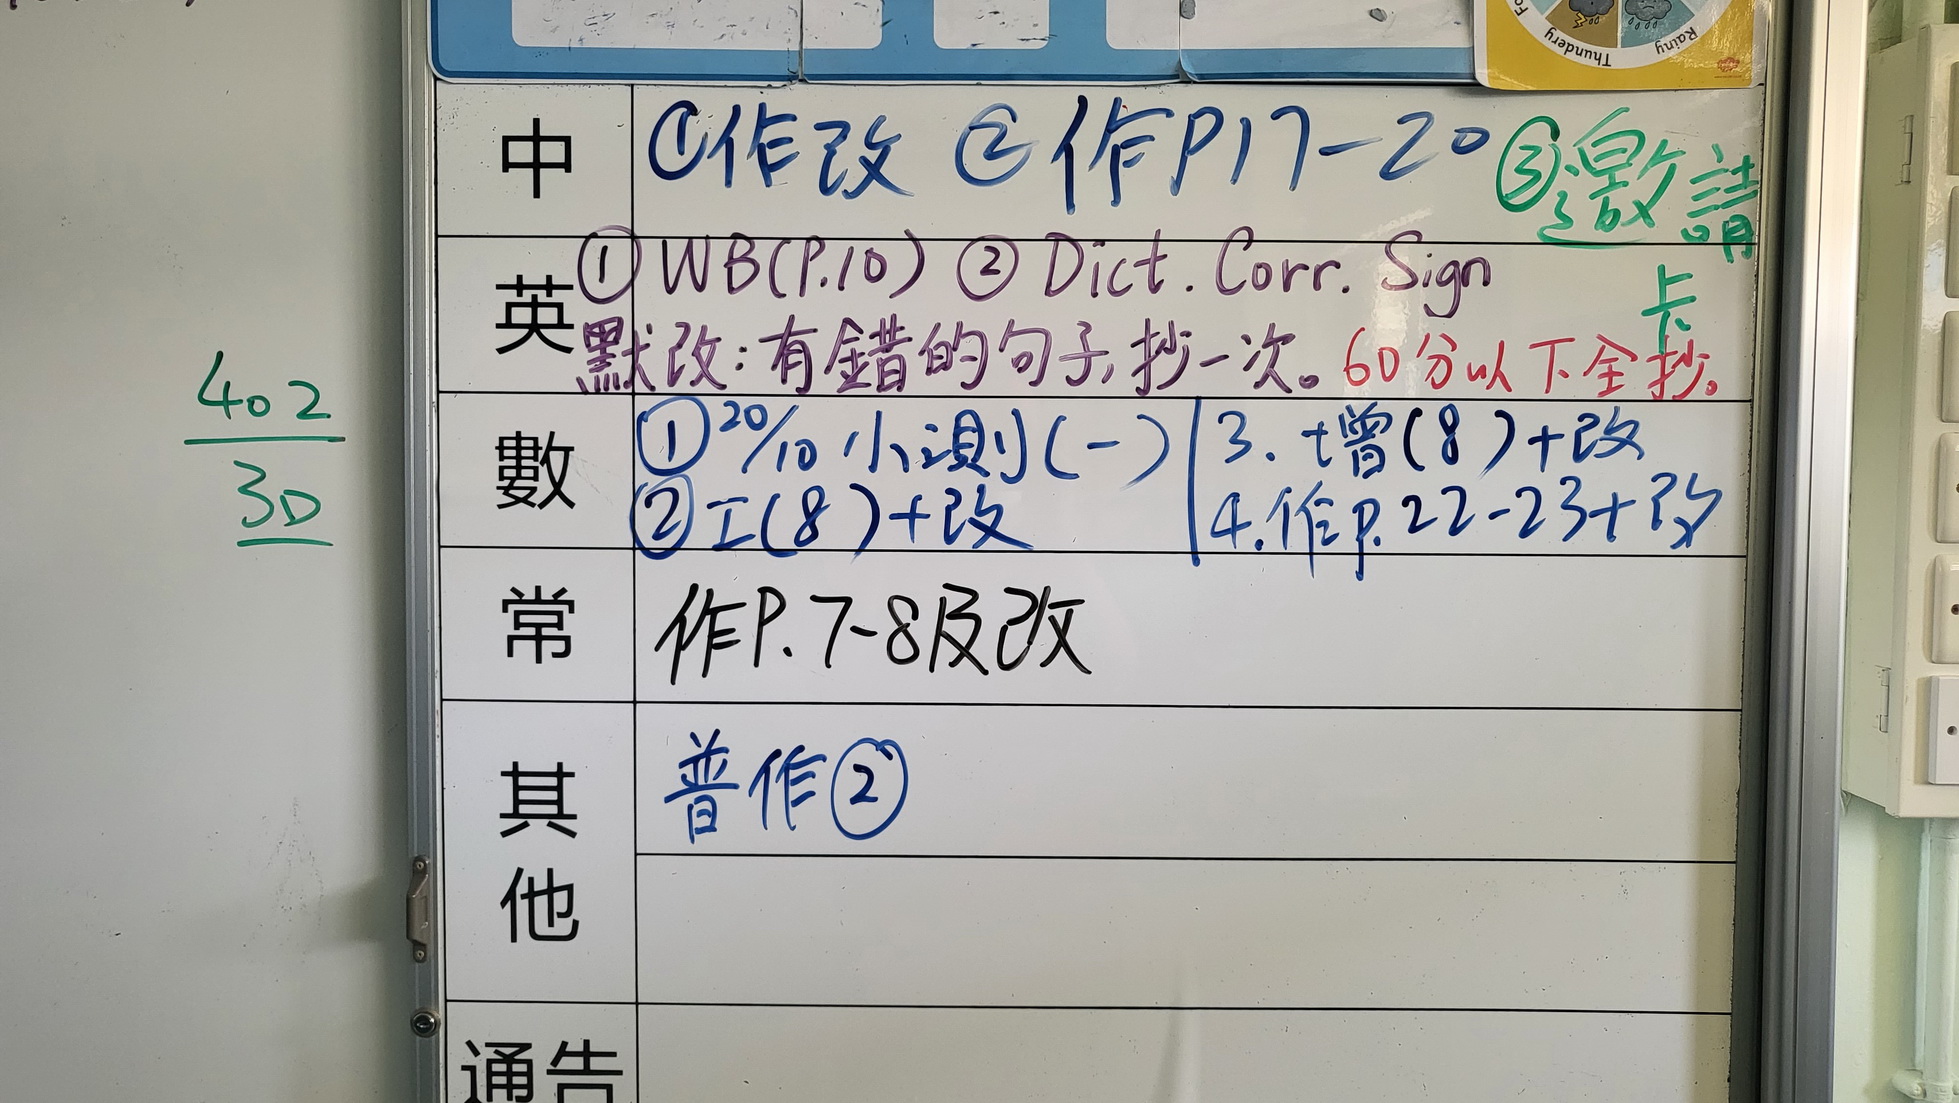 Thundery
Rainy
中
①作改 ②作P17-20 ③邀請卡
英
①WB(P.10) ②Dict. Corr. Sign
默改:有錯的句子,抄一次。60分以下全抄。
402
3D
數
①20/10 小測(一) 3. 增(8)+改
②工(8)+改 4.作P.22-23+改
常
作P.7-8及改
其他
普作②
通告